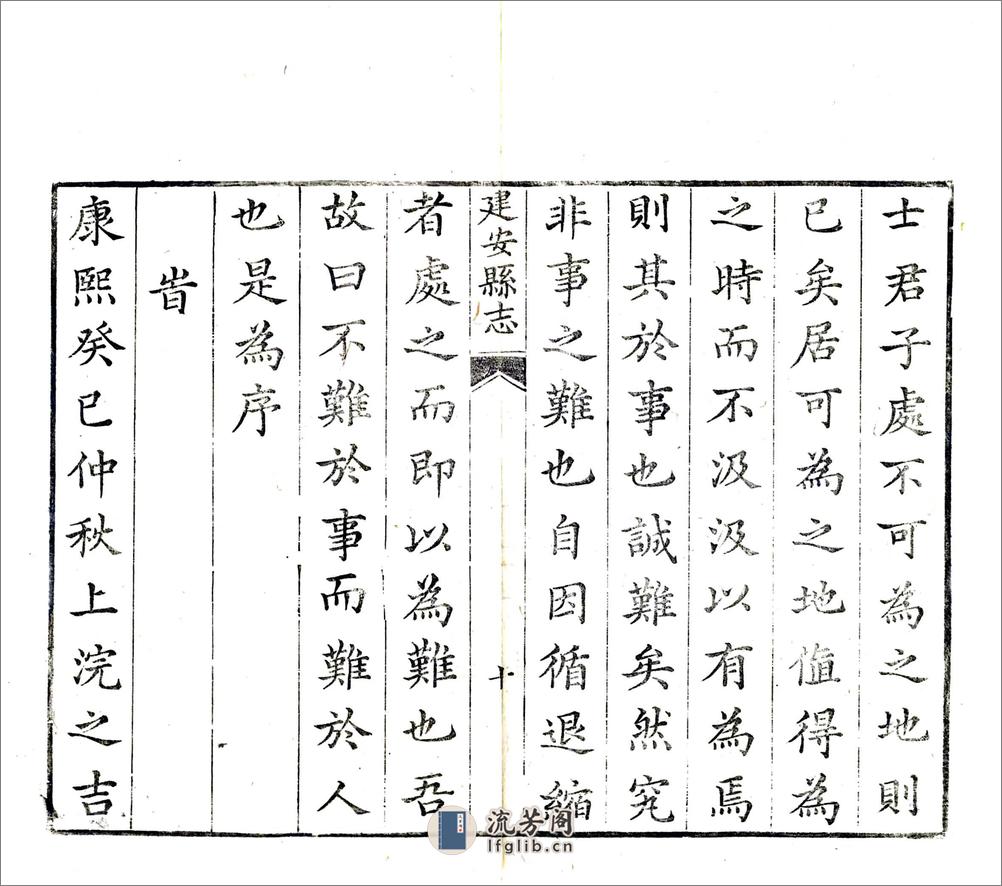 士君子處不可為之地則
已矣居可為之地值得為
之時而不汲汲以有為焉
則其於事也誠難矣然究
非事之難也自因循退縮
建安縣志
十
者處之而即以為難也吾
故曰不難於事而難於人
也是為序
旹
康熙癸巳仲秋上浣之吉
流芳阁
lfglib.cn